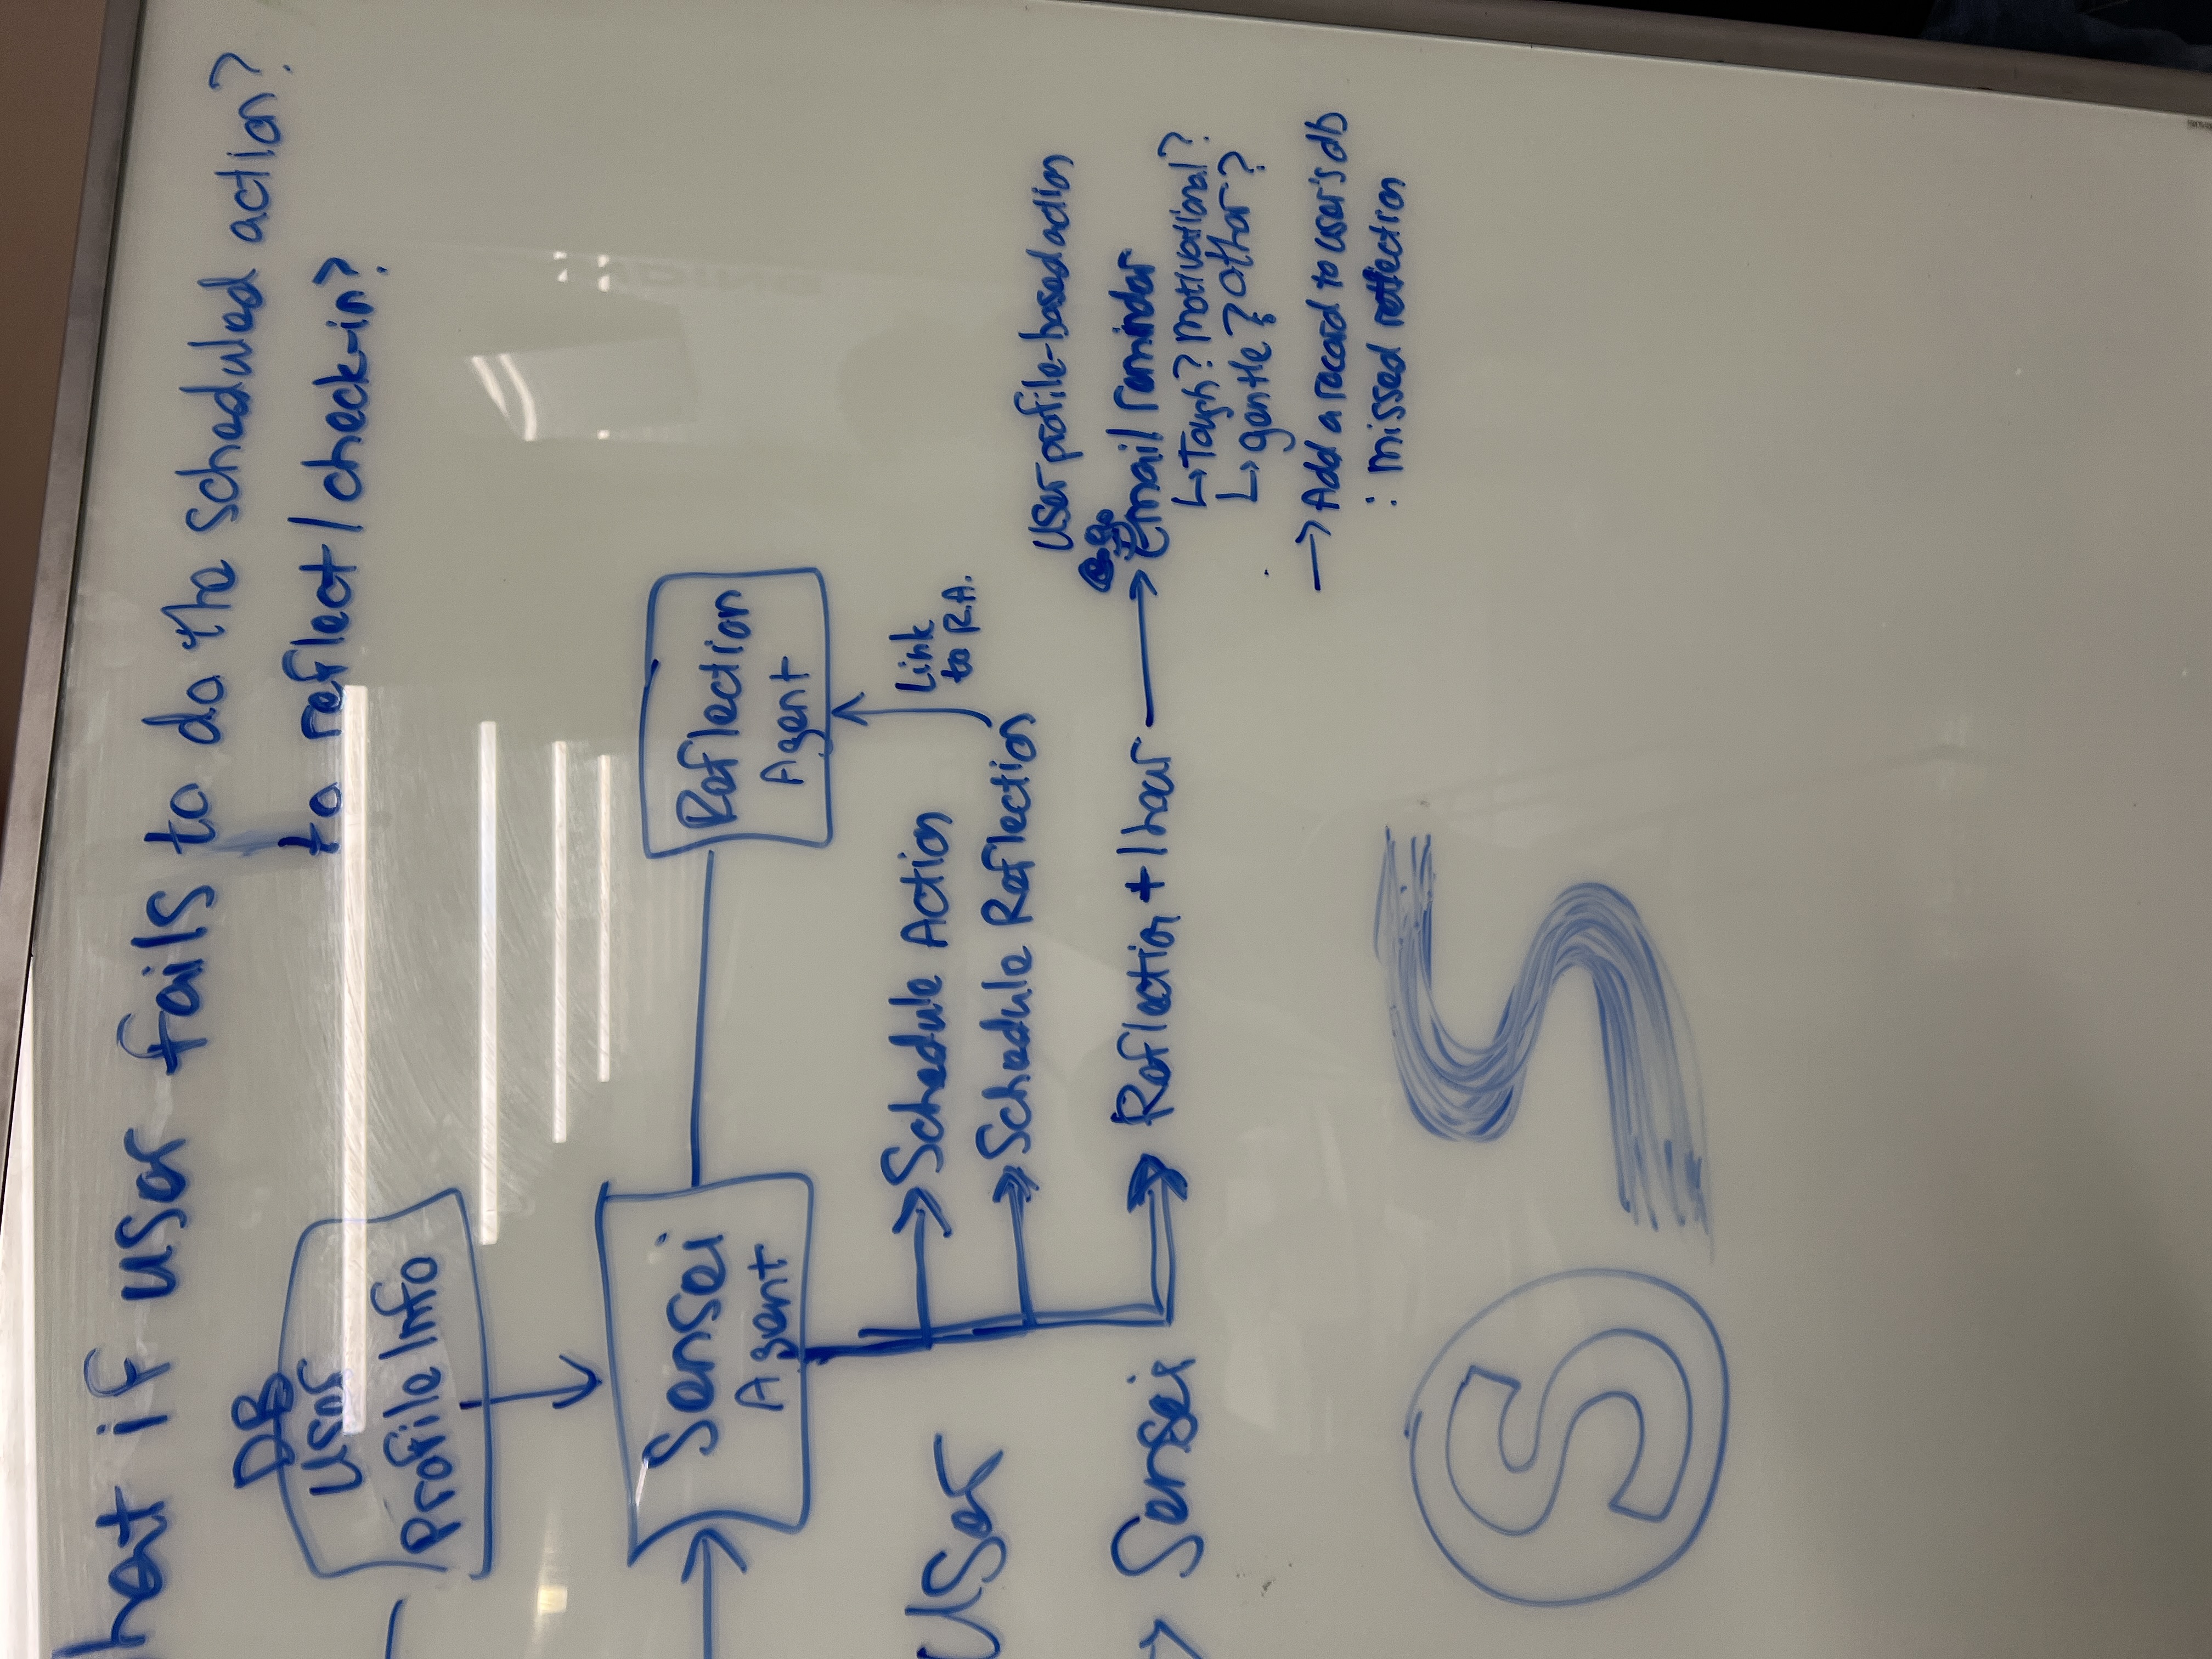 hat if user fails to do the scheduled action?
to reflect / check-in?
DB
User
Profile Info
Sensei
Agent
Reflection
Agent
Link
to R.A.
User
→ Schedule Action
→ Schedule Reflection
→ Sensei
→ Reflection + 1 hour →
User profile-based action
Email reminder
↳ Tough? Motivational?
↳ gentle? Other?
→ Add a record to user's db
: missed reflection
S
S